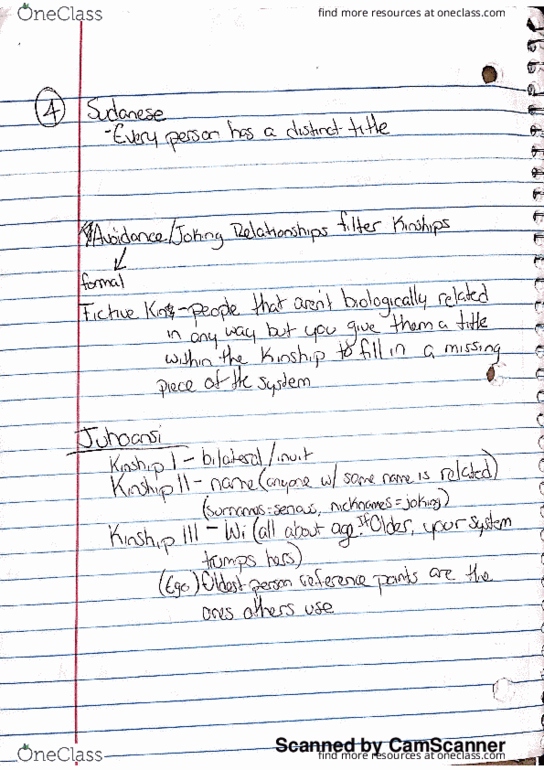 OneClass
find more resources at oneclass.com
4 Sudanese
-Every person has a distinct title
Avoidance/Joking Relationships filter Kinships
formal
Fictive Kin-people that aren't biologically related
in any way but you give them a title
within the Kinship to fill in a missing
piece of the system
Juhoansi
Kinship I - bilateral/inuit
Kinship II - name (anyone w/ same name is related)
(surnames=serious, nicknames=joking)
Kinship III - Wi (all about age. If Older, your system
trumps hers)
(Ego) Oldest person reference points are the
ones others use
Scanned by CamScanner
OneClass
find more resources at oneclass.com